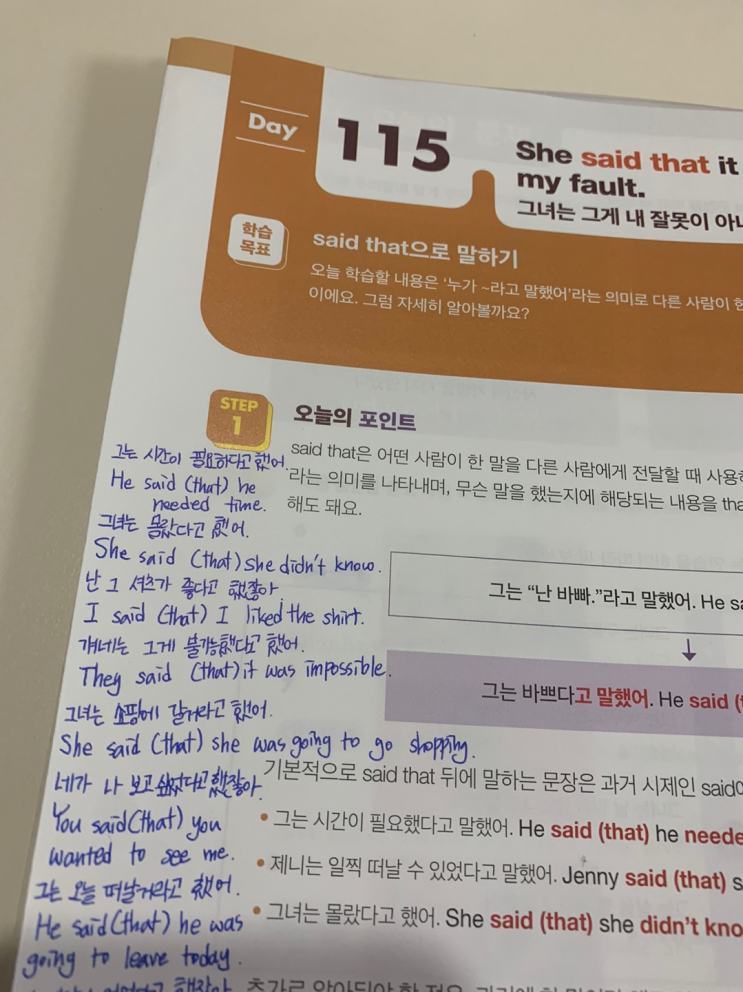 Day
115
She said that it
my fault.
그녀는 그게 내 잘못이 아니
학습
목표
said that으로 말하기
오늘 학습할 내용은 ‘누가 ~라고 말했어’라는 의미로 다른 사람이 한
이에요. 그럼 자세히 알아볼까요?
STEP
1
오늘의 포인트
said that은 어떤 사람이 한 말을 다른 사람에게 전달할 때 사용하
라는 의미를 나타내며, 무슨 말을 했는지에 해당되는 내용을 tha
해도 돼요.
그는 “난 바빠.”라고 말했어. He sa
그는 바쁘다고 말했어. He said (t
기본적으로 said that 뒤에 말하는 문장은 과거 시제인 said에
• 그는 시간이 필요했다고 말했어. He said (that) he neede
• 제니는 일찍 떠날 수 있었다고 말했어. Jenny said (that) s
• 그녀는 몰랐다고 했어. She said (that) she didn't kno
그는 시간이 필요하다고 했어.
He said (that) he
needed time.
그녀는 몰랐다고 했어.
She said (that) she didn't know.
난 그 셔츠가 좋다고 했잖아
I said (that) I liked the shirt.
걔네는 그게 불가능했다고 했어.
They said (that) it was impossible.
그녀는 쇼핑에 갈거라고 했어.
She said (that) she was going to go shopping.
네가 나 보고싶었다고 했잖아
You said (that) you
wanted to see me.
그는 오늘 떠날거라고 했어.
He said (that) he was
going to leave today.